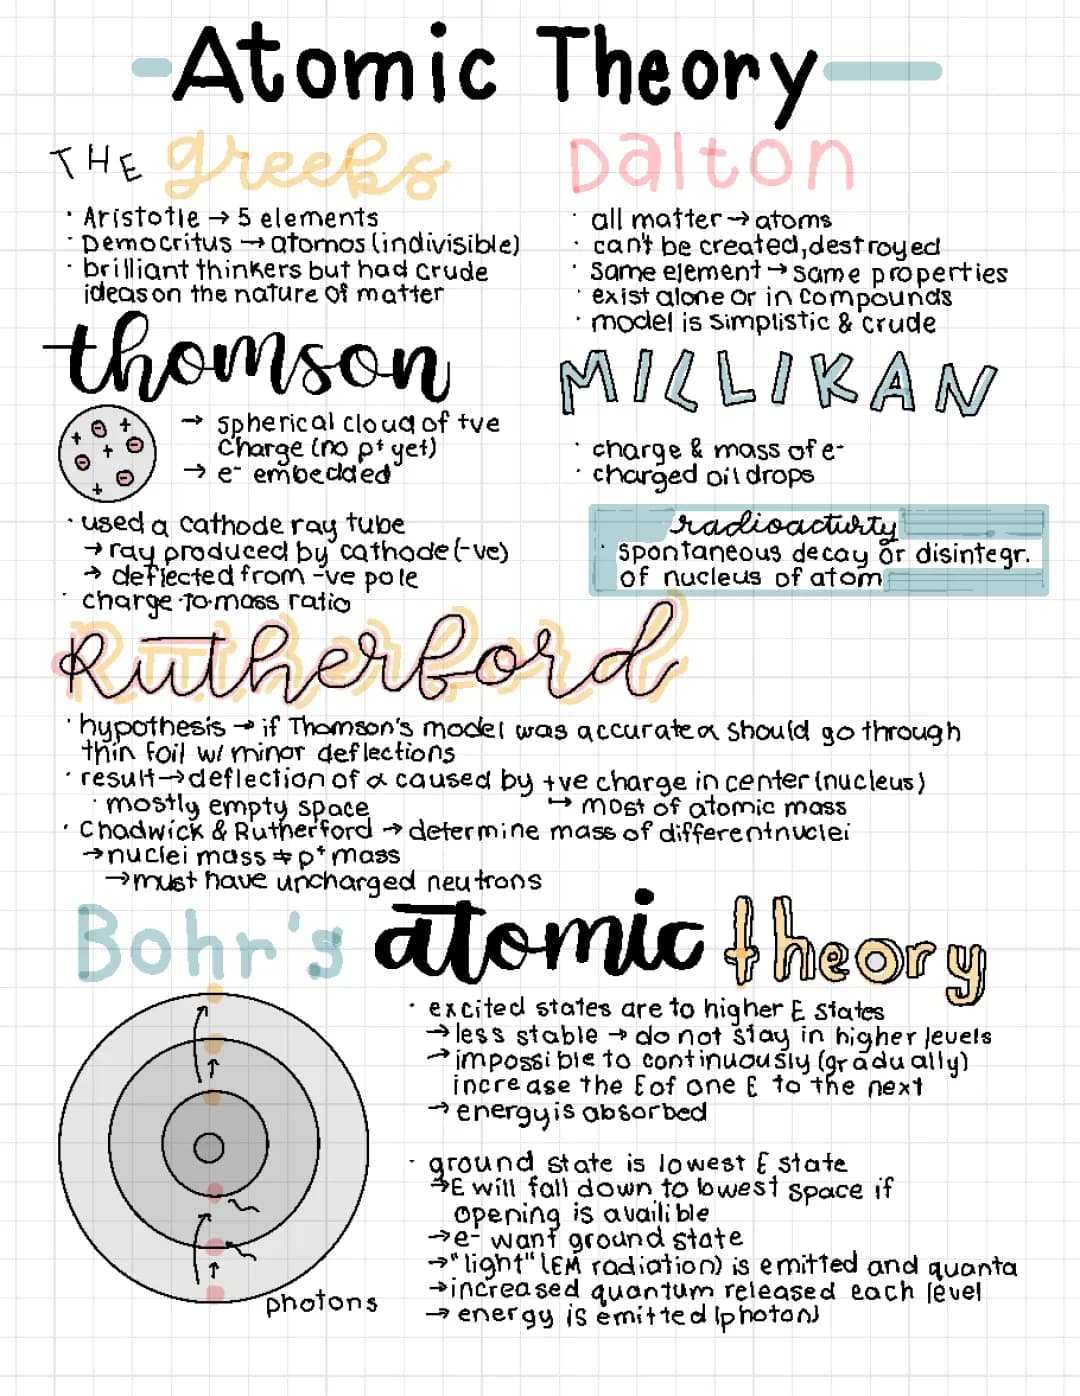 Atomic Theory
THE greeks
· Aristotle → 5 elements
· Democritus → atomos (indivisible)
· brilliant thinkers but had crude
ideas on the nature of matter
Dalton
· all matter → atoms
· can't be created, destroyed
· same element → same properties
· exist alone or in compounds
· model is simplistic & crude
thomson
→ spherical cloud of +ve
charge (no p⁺ yet)
→ e⁻ embedded
· used a cathode ray tube
→ ray produced by cathode (-ve)
→ deflected from -ve pole
· charge-to-mass ratio
MILLIKAN
· charge & mass of e⁻
· charged oil drops
radioactivity
· spontaneous decay or disintegr.
of nucleus of atom
Rutherford
· hypothesis → if Thomson's model was accurate α should go through
thin foil w/ minor deflections
· result → deflection of α caused by +ve charge in center (nucleus)
· mostly empty space ↪ most of atomic mass
· Chadwick & Rutherford → determine mass of different nuclei
→ nuclei mass ≠ p⁺ mass
→ must have uncharged neutrons
Bohr's atomic theory
· excited states are to higher E states
→ less stable → do not stay in higher levels
→ impossible to continuously (gradually)
increase the E of one E to the next
→ energy is absorbed
· ground state is lowest E state
→ E will fall down to lowest space if
opening is availible
→ e⁻ want ground state
→ "light" (EM radiation) is emitted and quanta
→ increased quantum released each level
→ energy is emitted (photon)
photons